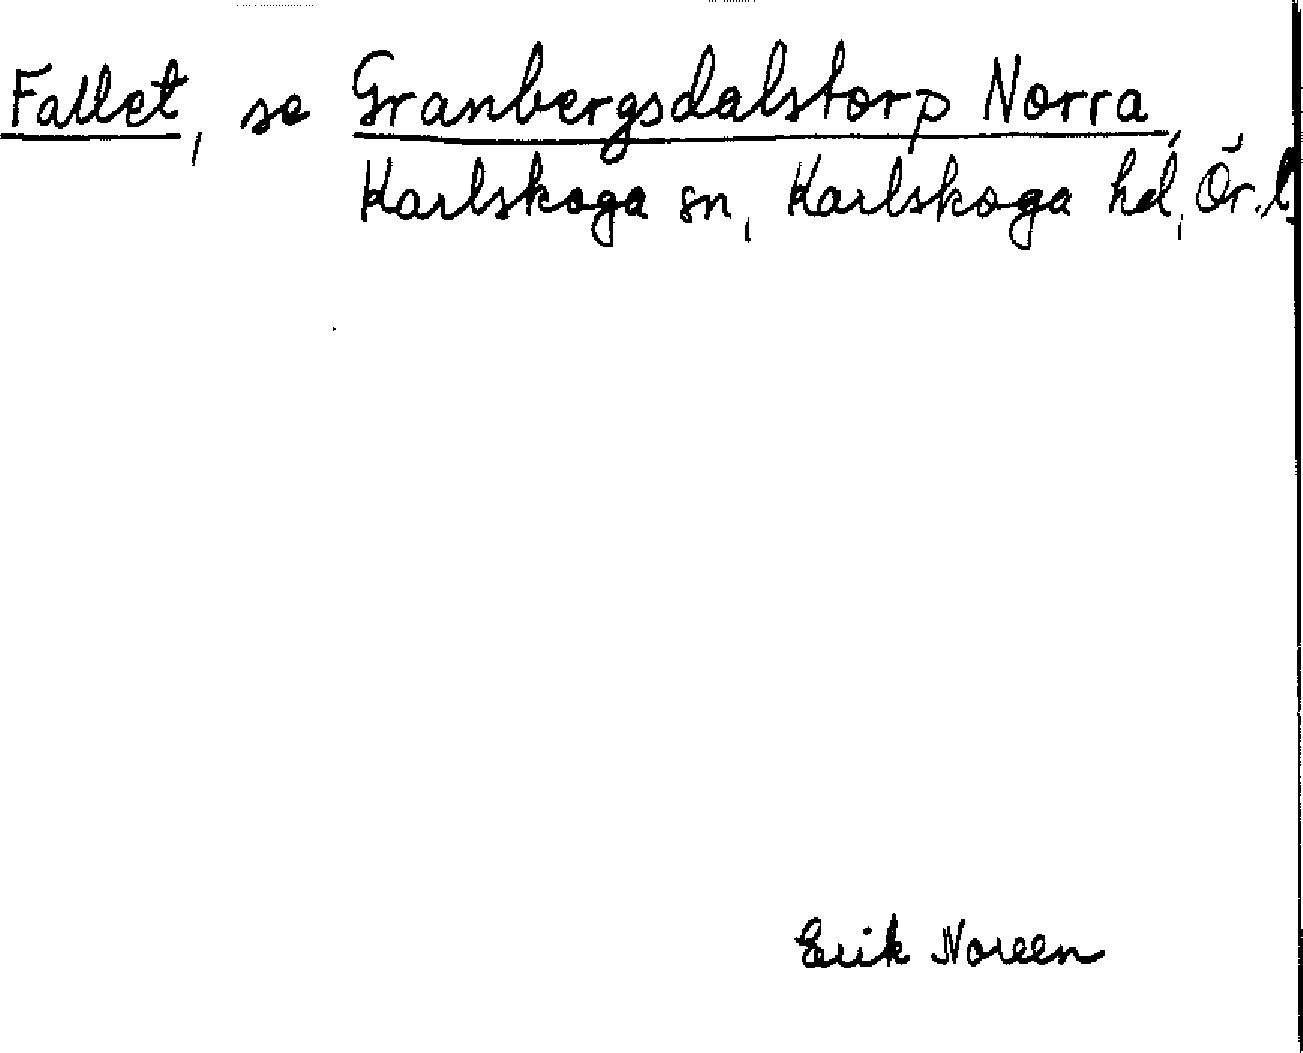 Fallet, se Granbergsdalstorp Norra,
Karlskoga sn, Karlskoga hd, Ör. l.
Erik Noreen